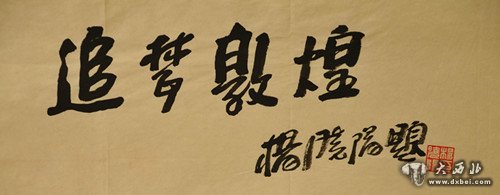 追梦敦煌
杨晓阳题
大西北
www.dxbei.com